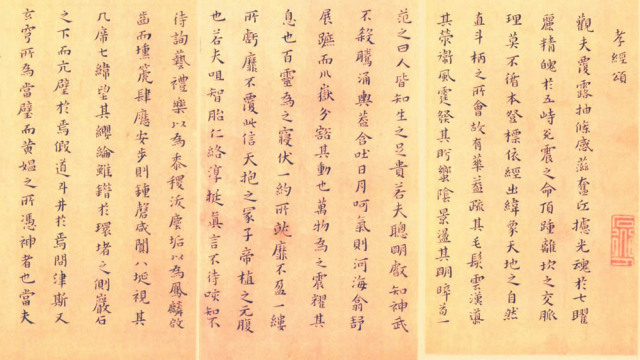 孝經頌
觀夫覆露抽條感滋奮紅攄光魂於七曜
麗精魄於五峙充震之命頂踵離坎之交脉
理莫不循本登標依經出緯蒙天地之自然
直斗柄之所會故有華蓋疏其毛髮雲漢導
其榮衛風霆發其肸蠁陰景盪其明晦一
范之曰人皆知生之足貴若夫聰明叡知神武
不殺騰涌輿蓋含吐日月呵氣則河海翕舒
展蹠而川嶽分豁其動也萬物為之震耀其
息也百靈為之寢伏一約所出靡不盈一縷
所虧靡不覆此信天抱之冢子帝植之元腹
也若夫咀智胎仁絡淳挻真言不待啖知不
待詢藝禮樂以為黍稷汰麼垢以為鳳麟啟
齒而壎箎肆應安步則鍾磬咸聞八埏視其
几席七緯望其纓綸雖錯於環堵之側巖石
之下而亢壁於焉假道斗井於焉問津斯又
玄穹所為當璧而黃媼之所憑神者也當夫